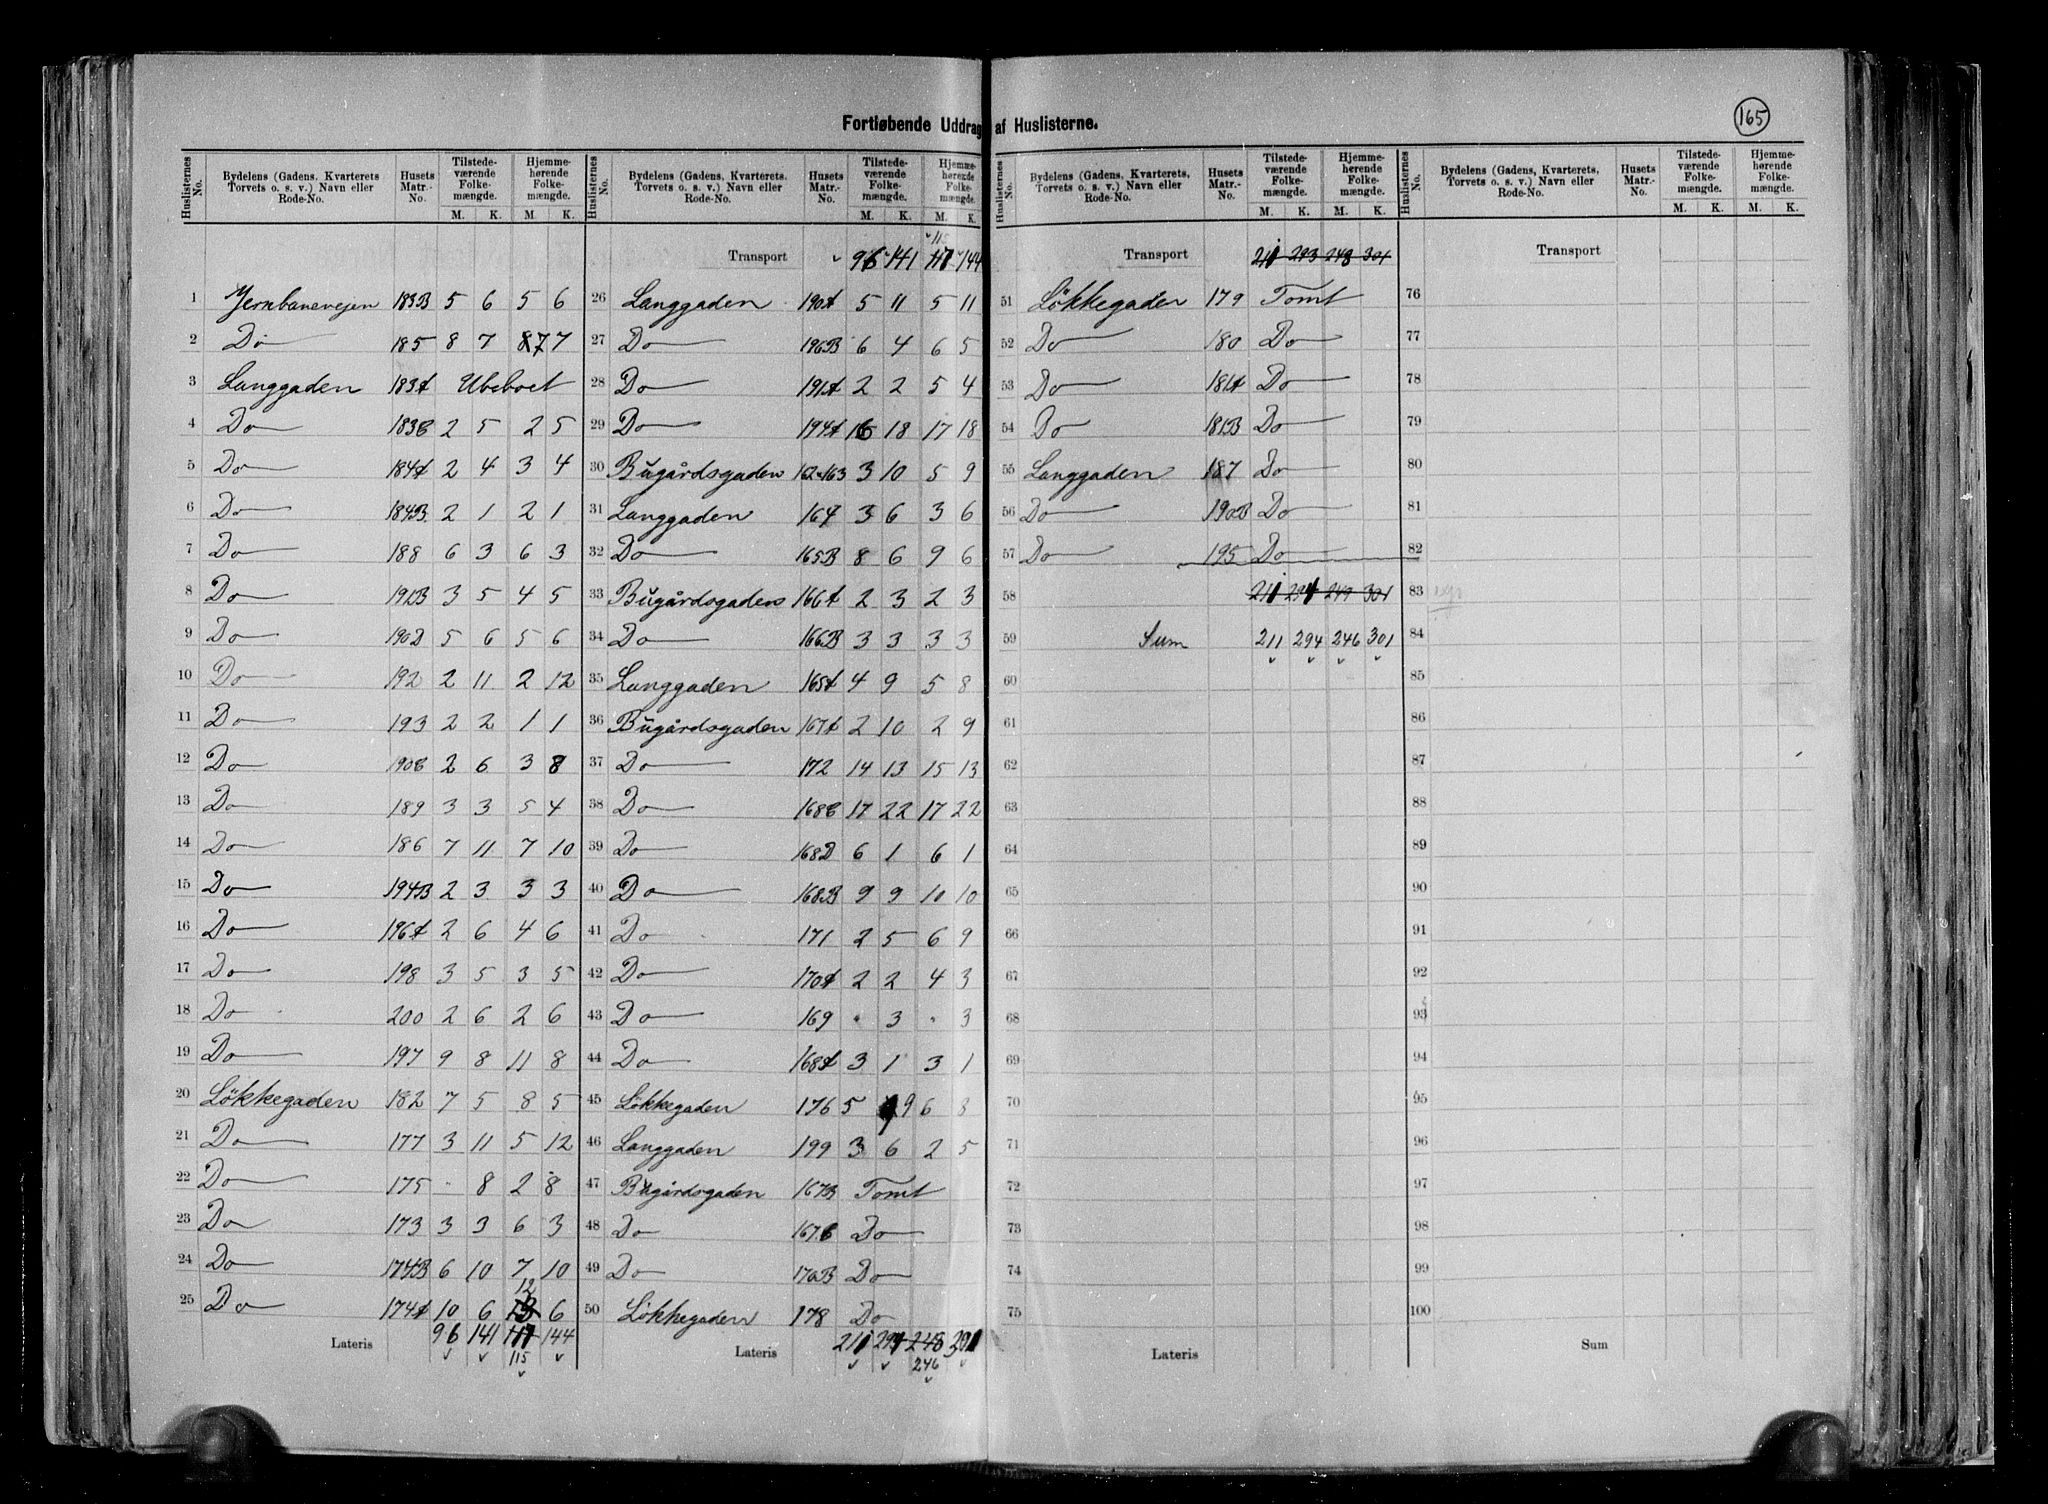 165
Fortløbende Uddrag af Huslisterne.
Huslisternes No. | Bydelens (Gadens, Kvarterets, Torvets o. s. v.) Navn eller Rode-No. | Husets Matr.-No. | Tilstedeværende Folkemængde. M. K. | Hjemmehørende Folkemængde. M. K.
1 Jernbanevejen 183B 5 6 5 6
2 Do 185 8 7 7 7
3 Langgaden 183A Ubeboet
4 Do 183C 2 5 2 5
5 Do 184A 2 4 3 4
6 Do 184B 2 1 2 1
7 Do 188 6 3 6 3
8 Do 191B 3 5 4 5
9 Do 190D 5 6 5 6
10 Do 192 2 11 2 12
11 Do 193 2 2 1 1
12 Do 190C 2 6 3 8
13 Do 189 3 3 5 4
14 Do 186 7 11 7 10
15 Do 194B 2 3 3 3
16 Do 196A 2 6 4 6
17 Do 198 3 5 3 5
18 Do 200 2 6 2 6
19 Do 197 9 8 11 8
20 Løkkegaden 182 7 5 8 5
21 Do 177 3 11 5 12
22 Do 175 - 8 2 8
23 Do 173 3 3 6 3
24 Do 174B 6 10 7 10
12
25 Do 174A 10 6 13 6
Lateris 96 141 117 144
115
Huslisternes No. | Bydelens (Gadens, Kvarterets, Torvets o. s. v.) Navn eller Rode-No. | Husets Matr.-No. | Tilstedeværende Folkemængde. M. K. | Hjemmehørende Folkemængde. M. K.
115
Transport 96 141 117 144
26 Langgaden 190A 5 11 5 11
27 Do 196B 6 4 6 5
28 Do 191A 2 2 5 4
29 Do 194A 16 18 17 18
30 Bugårdsgaden 162-163 3 10 5 9
31 Langgaden 164 3 6 3 6
32 Do 165B 8 6 9 6
33 Bugårdsgaden 166A 2 3 2 3
34 Do 166B 3 3 3 3
35 Langgaden 165A 4 9 5 8
36 Bugårdsgaden 167A 2 10 2 9
37 Do 172 14 13 15 13
38 Do 168C 17 22 17 22
39 Do 168D 6 1 6 1
40 Do 168B 9 9 10 10
41 Do 171 2 5 6 9
42 Do 170A 2 2 4 3
43 Do 169 " 3 " 3
44 Do 168A 3 1 3 1
45 Løkkegaden 176 5 9 6 8
46 Langgaden 199 3 6 2 5
47 Bugårdsgaden 167B Tomt
48 Do 167C Do
49 Do 170B Do
50 Løkkegaden 178 Do
Lateris 211 294 248 301
246
Huslisternes No. | Bydelens (Gadens, Kvarterets, Torvets o. s. v.) Navn eller Rode-No. | Husets Matr.-No. | Tilstedeværende Folkemængde. M. K. | Hjemmehørende Folkemængde. M. K.
Transport 211 293 248 301
51 Løkkegaden 179 Tomt
52 Do 180 Do
53 Do 181A Do
54 Do 181B Do
55 Langgaden 187 Do
56 Do 190B Do
57 Do 195 Do
58 211 294 249 301
59 Sum 211 294 246 301
60
61
62
63
64
65
66
67
68
69
70
71
72
73
74
75
Lateris
Huslisternes No. | Bydelens (Gadens, Kvarterets, Torvets o. s. v.) Navn eller Rode-No. | Husets Matr.-No. | Tilstedeværende Folkemængde. M. K. | Hjemmehørende Folkemængde. M. K.
Transport
76
77
78
79
80
81
82
83
84
85
86
87
88
89
90
91
92
93
94
95
96
97
98
99
100
Sum